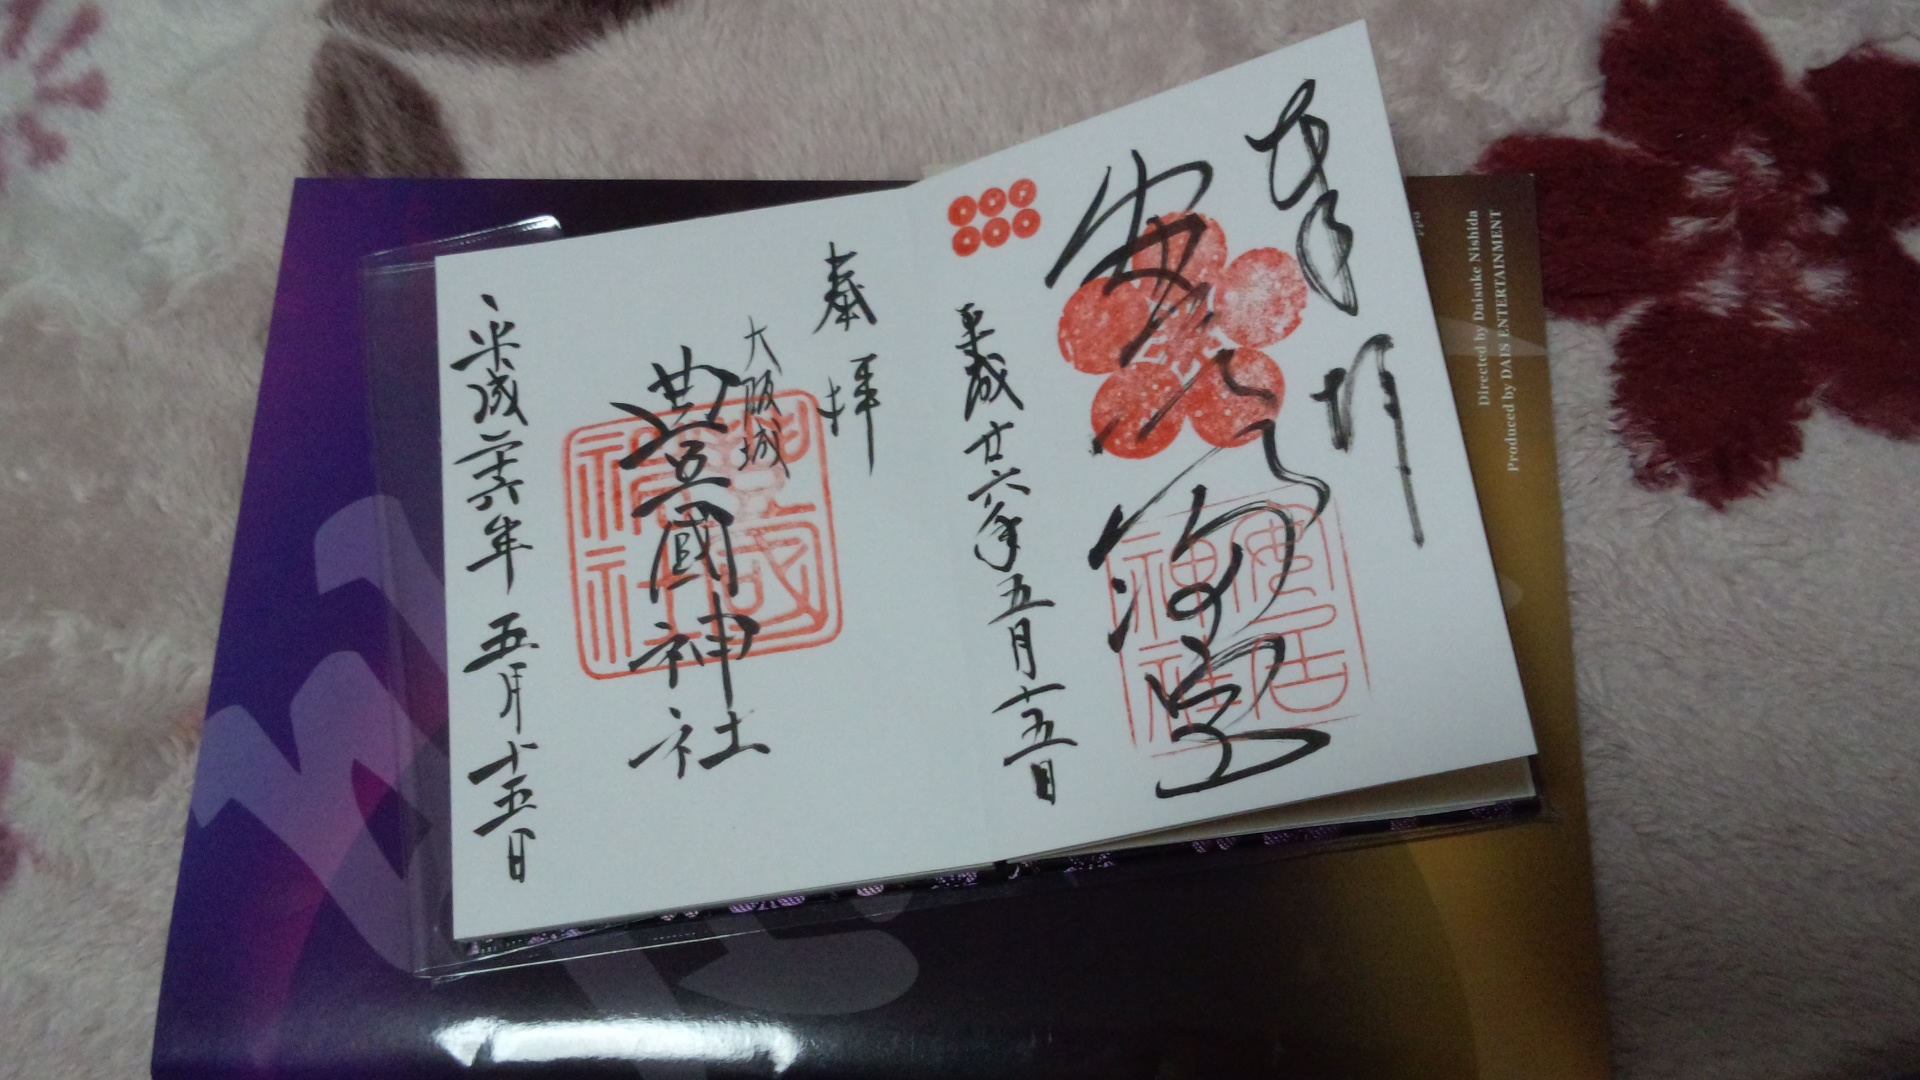 奉拝
安居天満宮
安居
神社
平成廿六年五月十五日
奉拝
大阪城
豊國神社
豊國
神社
平成二十六年五月十五日
Directed by Daisuke Nishida
Produced by DAIS ENTERTAINMENT